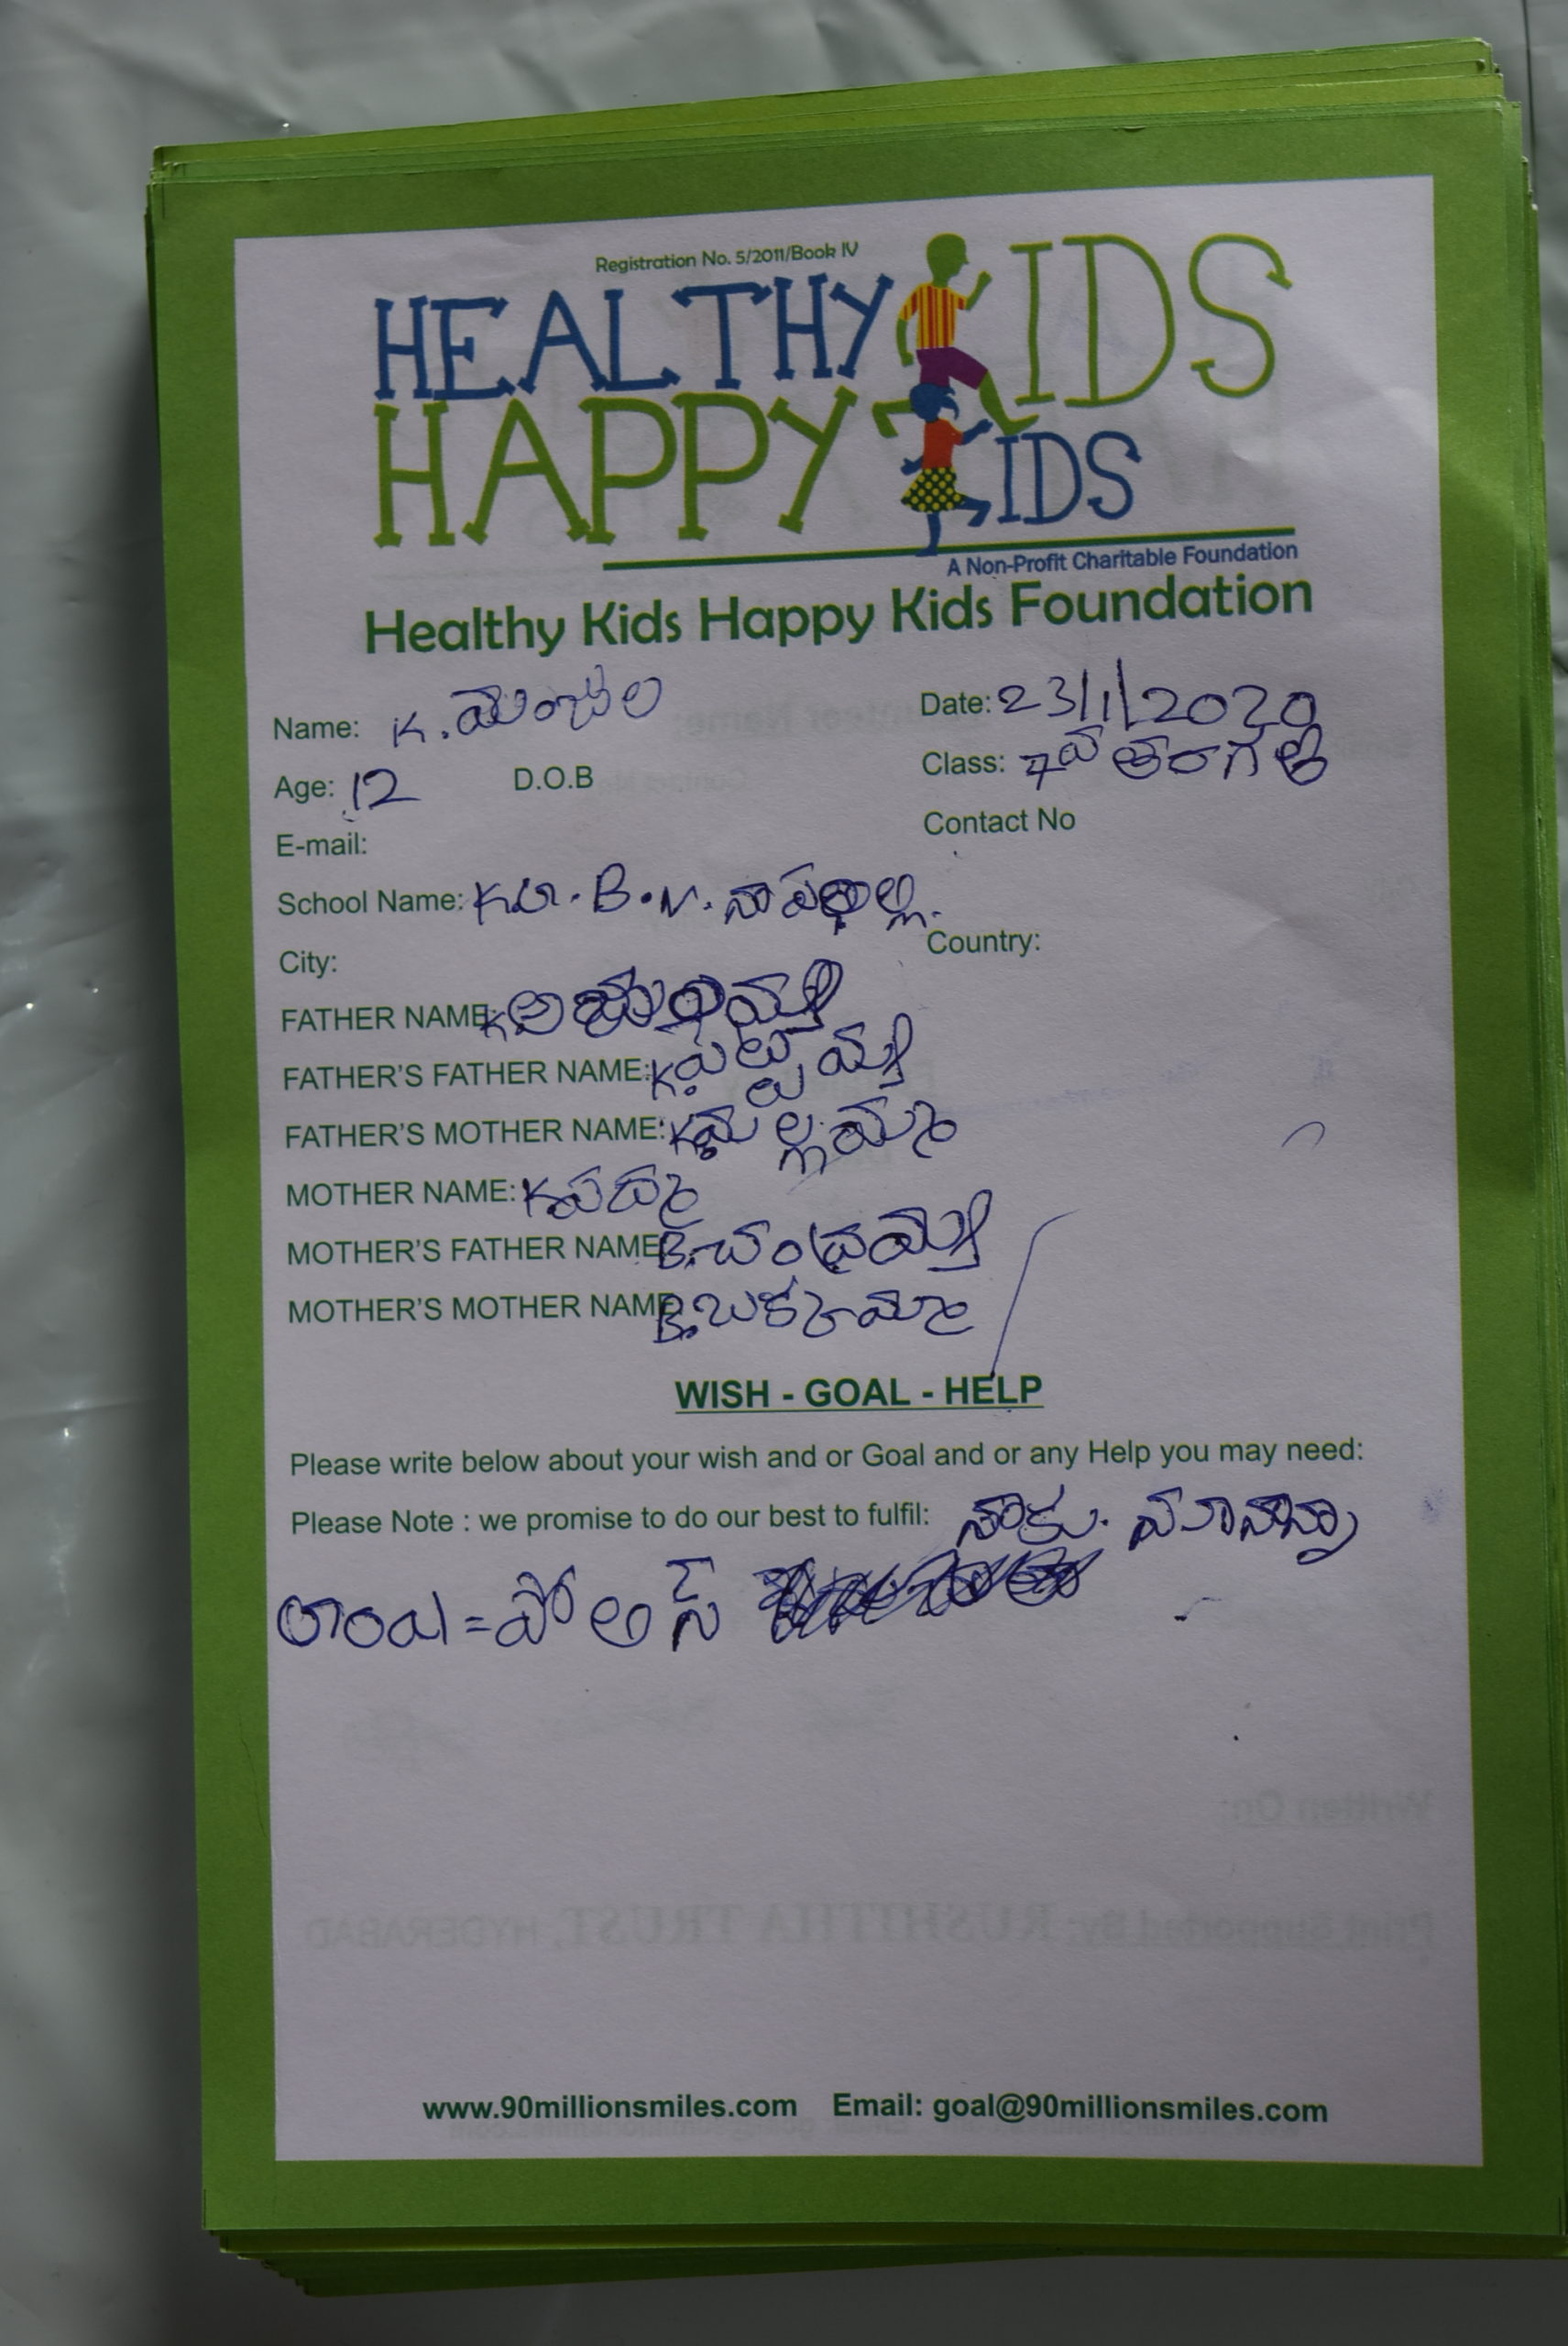 Registration No. 5/2011/Book IV
HEALTHY KIDS
HAPPY KIDS
A Non-Profit Charitable Foundation
Healthy Kids Happy Kids Foundation
Name: K. మంజుల Date: 23/1/2020
Age: 12 D.O.B Class: 7వ తరగతి
E-mail: Contact No
School Name: B.N.
City: Country:
FATHER NAME: K.
FATHER'S FATHER NAME: K.
FATHER'S MOTHER NAME: K. మల్లమ్మ
MOTHER NAME: K. పద్మ
MOTHER'S FATHER NAME B. చంద్రయ్య
MOTHER'S MOTHER NAME B. బక్కమ్మ
WISH - GOAL - HELP
Please write below about your wish and or Goal and or any Help you may need:
Please Note : we promise to do our best to fulfil: నాకు. మా నాన్న
Goal = పోలిస్
www.90millionsmiles.com Email: goal@90millionsmiles.com